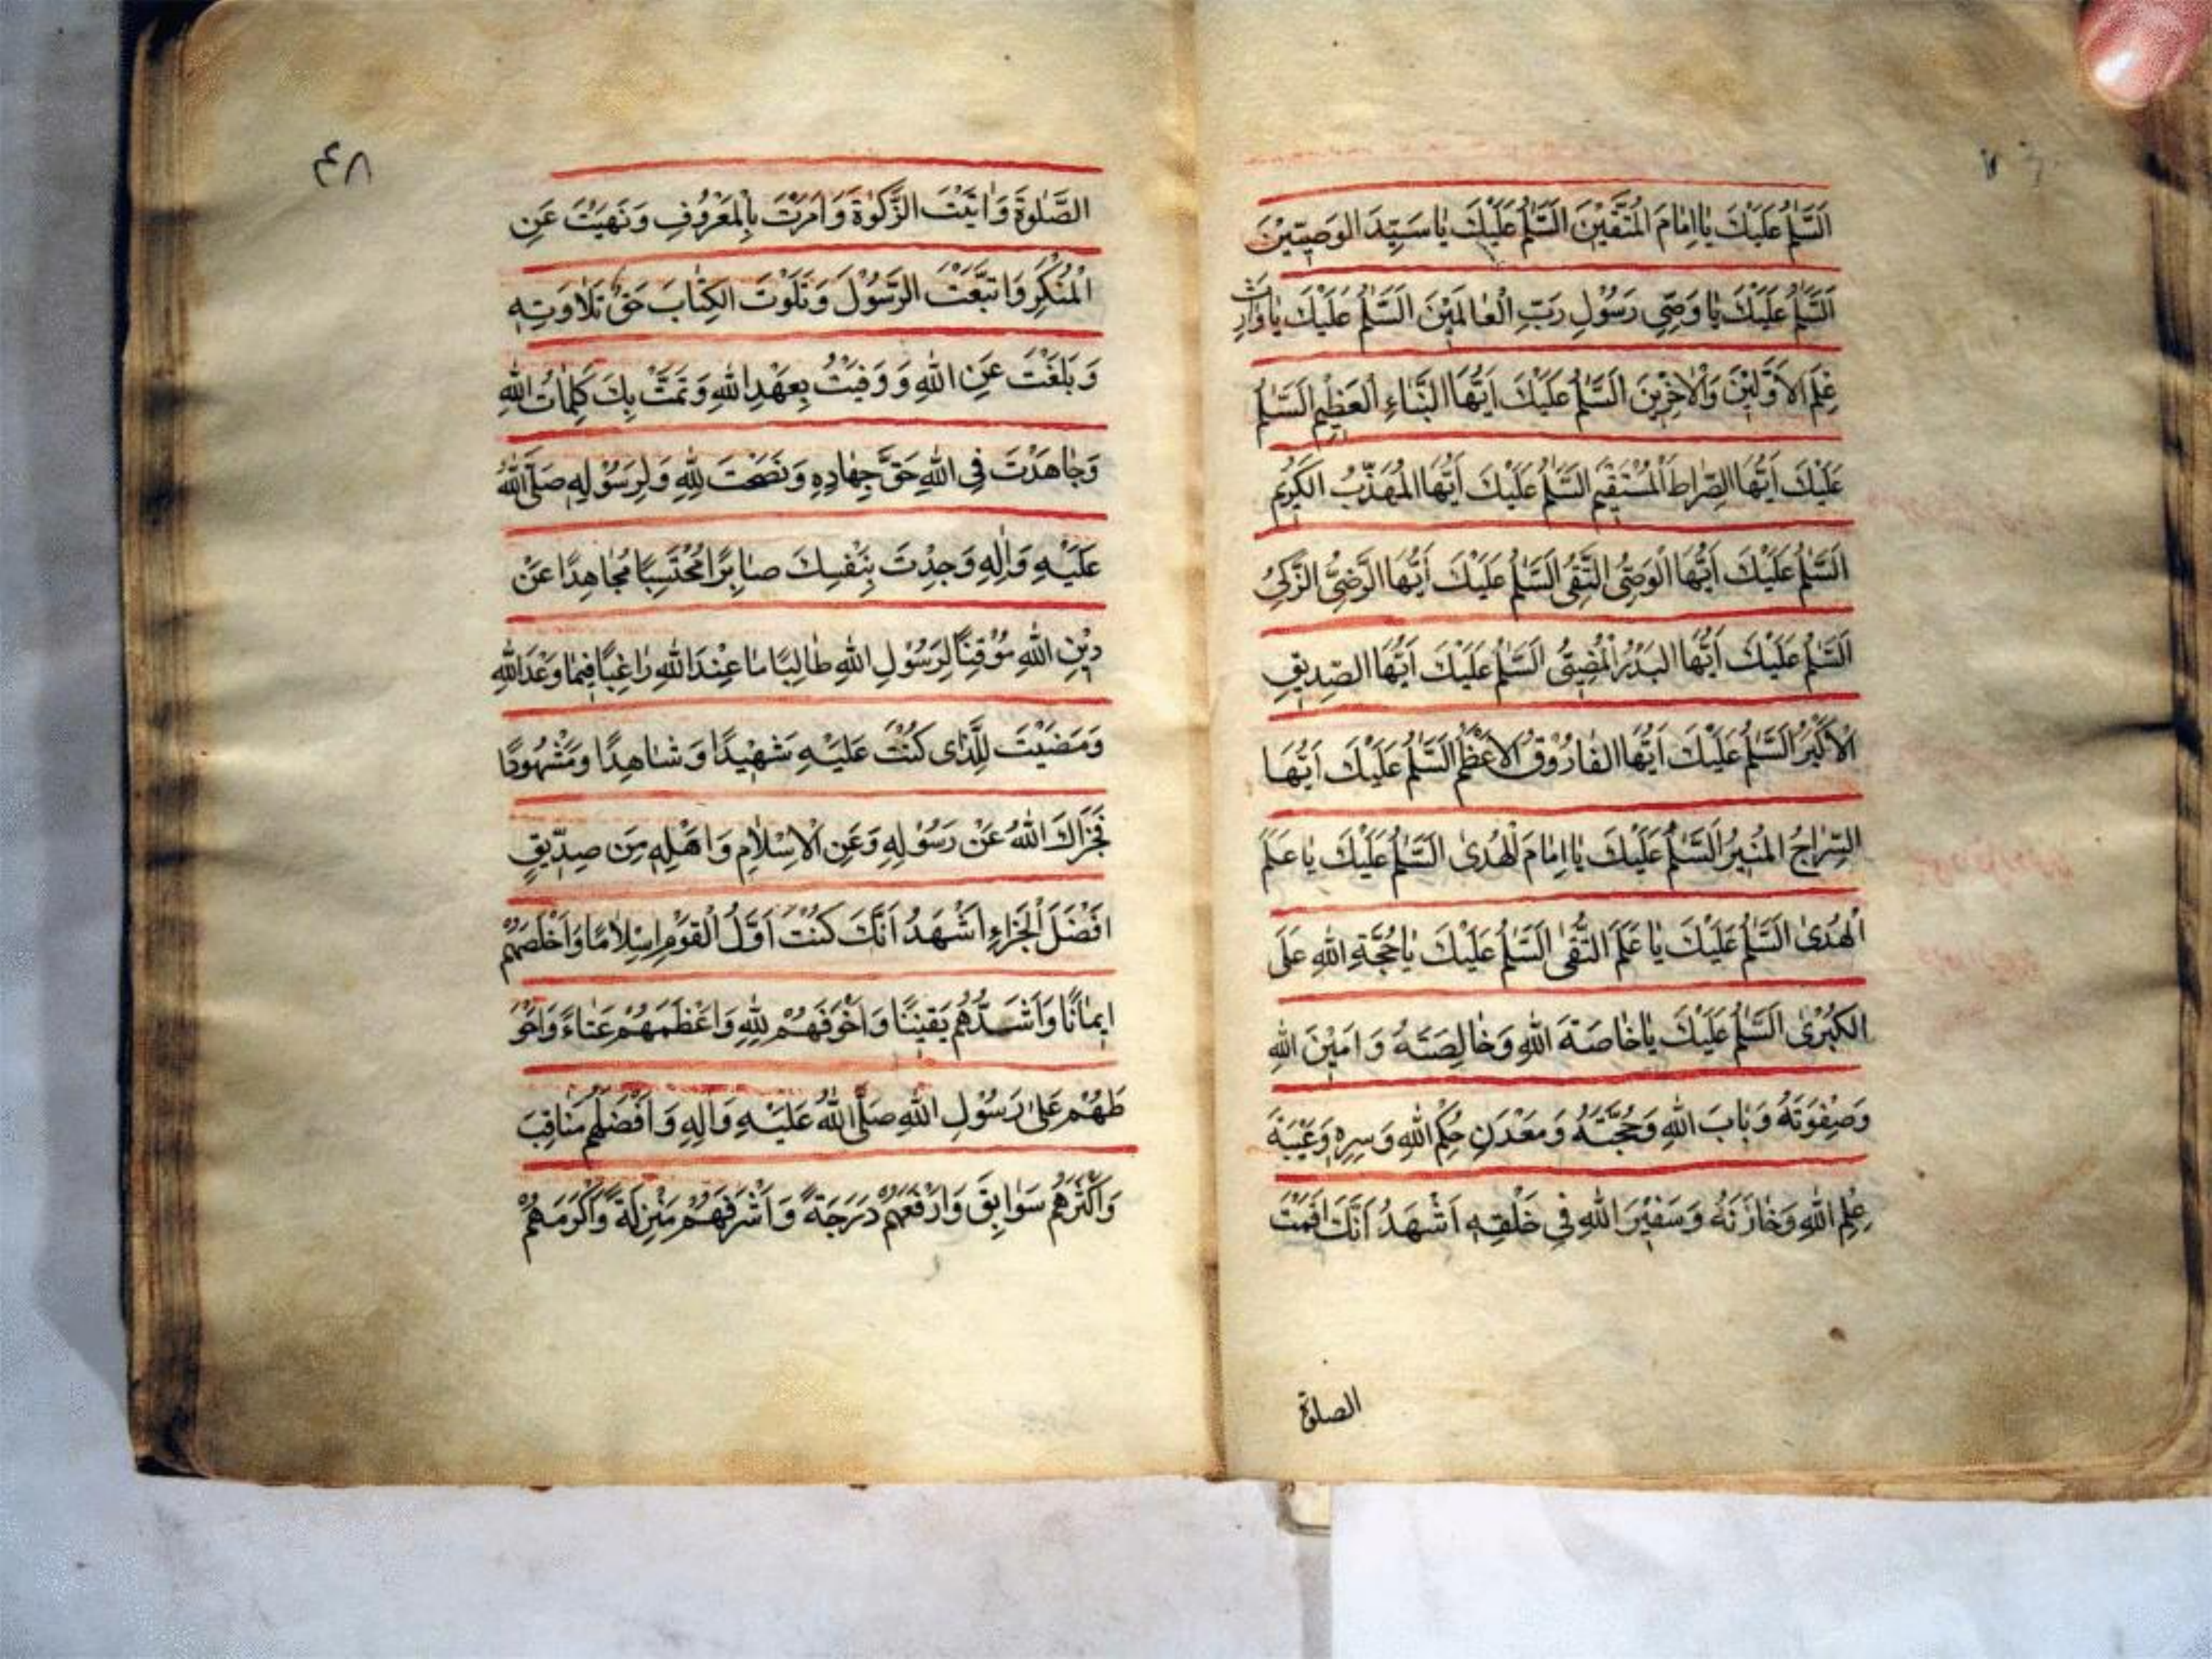 اَلسَّلٰمُ عَلَيْكَ يٰا اِمٰامَ الْمُتَّقِيْنَ اَلسَّلٰمُ عَلَيْكَ يٰا سَيِّدَ الوَصِيّيْنَ
اَلسَّلٰمُ عَلَيْكَ يٰا وَصِّي رَسُوْلِ رَبِّ الْعٰالَمَيْنَ اَلسَّلٰمُ عَلَيْكَ يٰا وٰارِثَ
عِلْمِ الاَوَّلِيْنَ وَالْاٰخِرْيِنَ اَلسَّلٰمُ عَلَيْكَ اَيُّهَا النَّبَاءِ الْعَظْيِمِ اَلسَّلٰمُ
عَلَيْكَ اَيُّهَا الصِّرٰاطَ الْمُسْتَقْيِمَ اَلسَّلٰمُ عَلَيْكَ اَيُّهَا الْمُهَذَّبُ الكَرْيِمُ
اَلسَّلٰمُ عَلَيْكَ اَيُّهَا الْوَصِيُّ التَّقِىُّ اَلسَّلٰمُ عَلَيْكَ اَيُّهَا الرَّضِيُّ الزَّكِىُّ
اَلسَّلٰمُ عَلَيْكَ اَيُّهَا البَدْرُ الْمُضِيْئُ اَلسَّلٰمُ عَلَيْكَ اَيُّهَا الصِّدِيْقِ
الْاَكْبَرُ اَلسَّلٰمُ عَلَيْكَ اَيُّهَا الفٰارُوْقُ الْاَعْظَمُ اَلسَّلٰمُ عَلَيْكَ اَيُّهَا
السِّرٰاجُ الْمُنْيِرُ اَلسَّلٰمُ عَلَيْكَ يٰا اِمٰامَ الْهُدىٰ اَلسَّلٰمُ عَلَيْكَ يٰا عَلَمَ
الْهُدىٰ اَلسَّلٰمُ عَلَيْكَ يٰا عَلَمَ التُّقىٰ اَلسَّلٰمُ عَلَيْكَ يٰا حُجَّةِ اللّٰهِ عَلَى
الكُبْرىٰ اَلسَّلٰمُ عَلَيْكَ يٰا خٰاصَةَ اللّٰهِ وَخٰالِصَتَهُ وَ اَمْيِنَ اللّٰهِ
وَصِفْوَتَهُ وَ بٰابَ اللّٰهِ وَحُجَّتَهُ وَ مَعْدَنِ حِكْمِ اللّٰهِ وَ سِرِهِ وَغَيْبَةَ
عِلْمِ اللّٰهِ وَخٰازَنَهُ وَ سَفْيِرَ اللّٰهِ فِي خَلْقِهِ اَشْهَدُ اَنَّكَ اَقَمْتَ
الصلوة
٤٨
الصَّلٰوةَ وَ اٰتَيْتَ الزَّكٰوةَ وَ اَمَرْتَ بِالْمَعْرُوْفِ وَ نَهَيْتَ عَنِ
الْمُنْكَرِ وَ اتَّبَعْتَ الرَّسُوْلَ وَ تَلَوْتَ الكِتٰابَ حَقَّ تَلٰاوَتِهِ
وَ بَلَغْتَ عَنِ اللّٰهِ وَ وَفَيْتُ بِعَهْدِ اللّٰهِ وَ تَمَّتْ بِكَ كَلِمٰاتُ اللّٰهِ
وَجٰاهَدْتَ فِي اللّٰهِ حَقَّ جِهٰادِهِ وَ نَصَحْتَ لِلّٰهِ وَ لِرَسُوْلِهِ صَلَّى اللّٰهُ
عَلَيْهِ وَاٰلِهِ وَجِدْتَ بِنَفْسِكَ صٰابِرًا مُحْتَسِبًا مُجٰاهِدًا عَنْ
دِيْنِ اللّٰهِ مُوْقِنًا لِرَسُوْلِ اللّٰهِ طٰالِبًا مٰا عِنْدَ اللّٰهِ رٰاغِبًا فِيْمٰا وَعَدَ اللّٰهِ
وَمَضَيْتَ لِلَّذٰى كُنْتَ عَلَيْهِ شَهْيِدًا وَ شٰاهِدًا وَمَشْهُوْدًا
فَجَزٰاكَ اللّٰهُ عَنْ رَسُوْلِهِ وَعَنِ الْاِسْلٰامِ وَ اَهْلِهِ مِنَ صِدّيْقٍ
اَفْضَلَ الْجَزٰاءِ اَشْهَدُ اَنَّكَ كُنْتَ اَوَّلُ الْقَوْمِ اِسْلٰامًا وَاَخْلَصَهُمْ
اِيْمٰانًا وَاَشَدُّهُم يَقيْنًا وَ اَخْوَفَهُمْ لِلّٰهِ وَاَعْظَمَهُمْ عَنٰاءً وَاَحْوَ
طَهُمْ عَلىٰ رَسُوْلِ اللّٰهِ صَلَّى اللّٰهُ عَلَيْهِ وَاٰلِهِ وَ اَفْضَلُهُمْ مَنٰاقِبَ
وَ اَكْثَرَهُمْ سَوٰابِقَ وَ اَرْفَعَهُمْ دَرَجَةً وَ اَشْرَفَهُمْ مَنْزِلَةً وَاَكْرَمَهُمْ